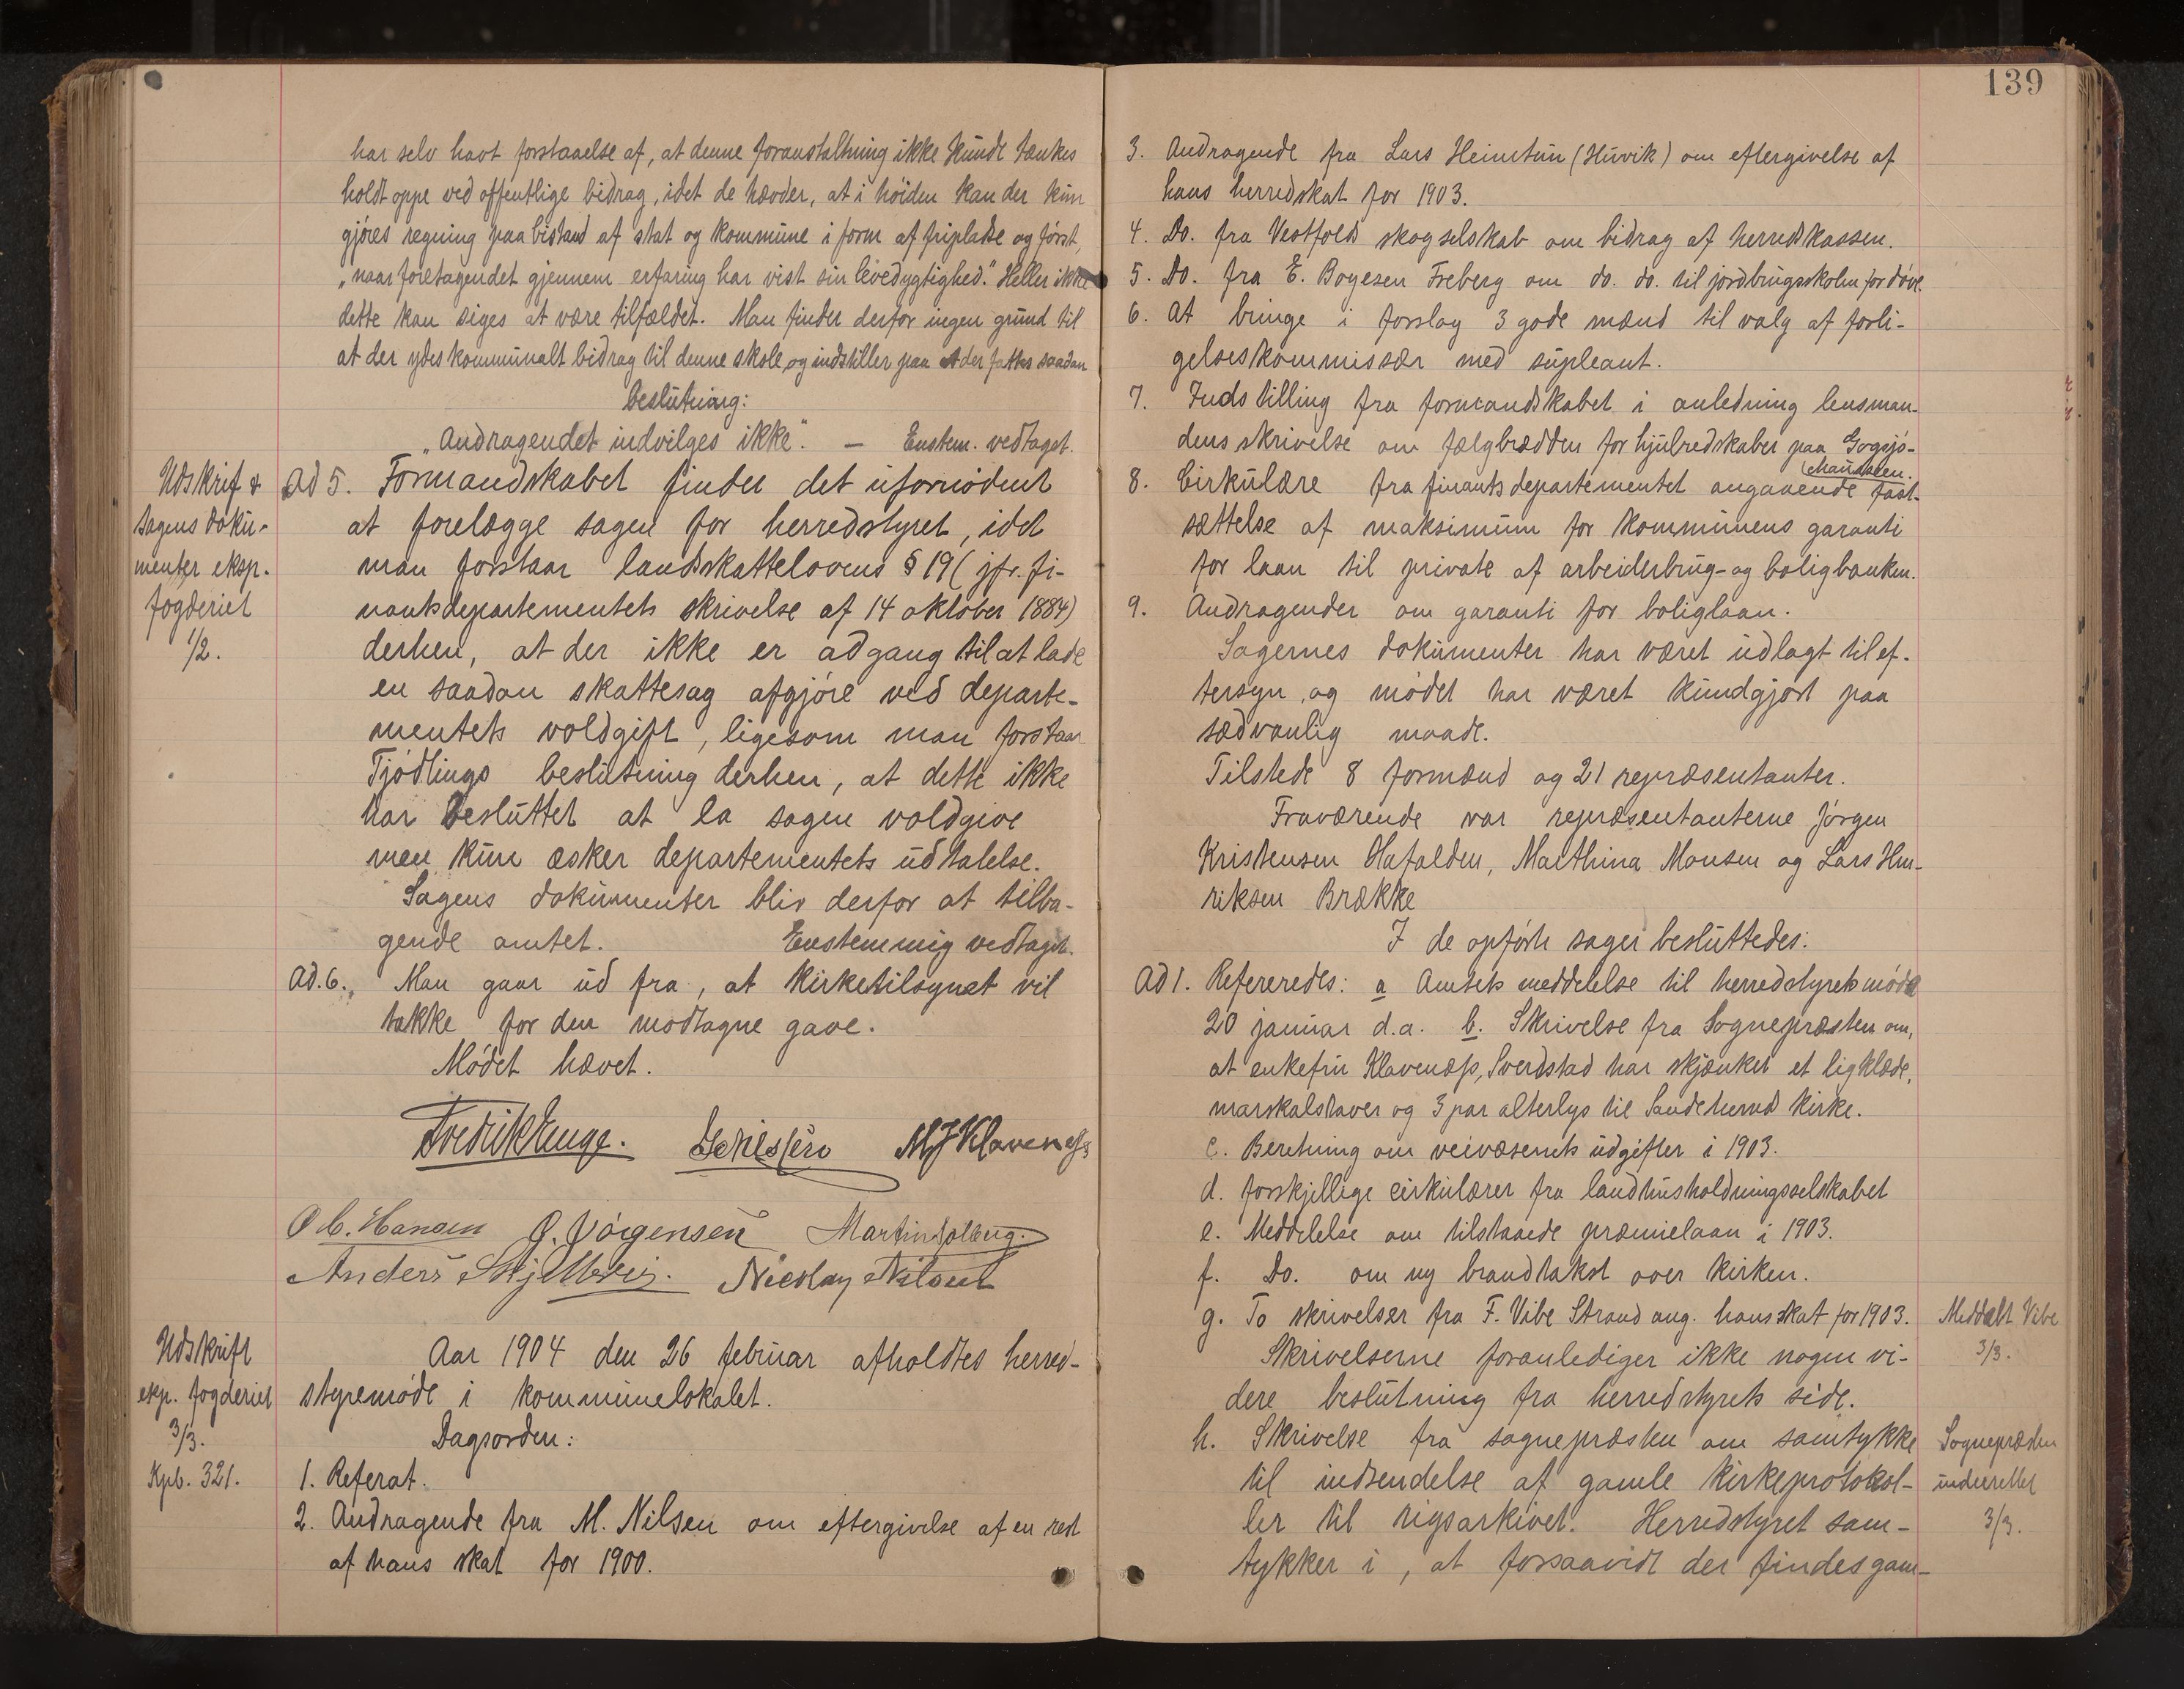 har selv havt forstaaelse af, at denne foranstaltning ikke kunde tænkes
holdt oppe ved offentlige bidrag, idet de hævder, at i høiden kan der kun
gjøres regning paa bistand af stat og kommune i form af fripladse og først,
„naar foretagendet gjennem erfaring har vist sin levedygtighed." Heller ikke
dette kan siges at være tilfældet. Man finder derfor ingen grund til
at der ydes kommunalt bidrag til denne skole og indstiller paa at der fattes saadan
beslutning:
„Andragendet indvilges ikke". — Enstem. vedtaget.
Udskrift &
sagens doku-
menter eksp.
fogderiet
1/2.
Ad 5. Formandskabet finder det ufornødent
at forelægge sagen for herredstyret, idet
man forstaar landskattelovens § 19 (jfr. fi-
nantsdepartementets skrivelse af 14 oktober 1884)
derhen, at der ikke er adgang til at lade
en saadan skattesag afgjøre ved departe-
mentets voldgift, ligesom man forstaar
Tjødlings beslutning derhen, at dette ikke
har besluttet at la sagen voldgive
men kun æsker departementets udtalelse.
Sagens dokumenter bliv derfor at tilba-
gende amtet. Enstemmig vedtaget.
Ad. 6. Man gaar ud fra, at kirketilsynet vil
takke for den modtagne gave.
Mødet hævet.
Fredrik Enge. L Nilssen M J Klaveness
O C. Hansen O. Jørgensen Martin Solberg.
Anders Skjelbrei. Nicolay Nilsen
Udskrift
exp. fogderiet
3/3.
Kpb. 321.
Aar 1904 den 26 februar afholdtes herred-
styremøde i kommunelokalet.
Dagsorden:
1. Referat.
2. Andragende fra M. Nilsen om eftergivelse af en rest
af hans skat for 1900.
139
3. Andragende fra Lars Heimtun (Huvik) om eftergivelse af
hans herredskat for 1903.
4. Do. fra Vestfold skogselskab om bidrag af herredskassen.
5. Do. fra E. Bogesen Freberg om do. do. til jordbrugsskolen for døve.
6. At bringe i forslag 3 gode mænd til valg af forli-
gelseskommissær med supleant.
7. Indstilling fra formandskabet i anledning lensman-
dens skrivelse om fælgbredden for hjulredskaber paa Gogsjø-
chausseen.
8. Cirkulære fra finantsdepartementet angaaende fast-
sættelse af maksimum for kommunens garanti
for laan til private af arbeiderbrug- og boligbanken.
9. Andragender om garanti for boliglaan.
Sagernes dokumenter har været udlagt til ef-
tersyn, og mødet har været kundgjort paa
sædvanlig maade.
Tilstede 8 formænd og 21 repræsentanter.
Fraværende var repræsentanterne Jørgen
Kristensen Hafalden, Marthina Monsen og Lars Hen-
riksen Brække
I de opførte sager besluttedes:
Ad 1. Refereredes: a Amtets meddelelse til herredstyrets møde
20 januar d.a. b. Skrivelse fra Sognepræsten om,
at enkefru Klavenæss, Sverdstad har skjænket et ligklæde,
marskalstaver og 3 par alterlys til Sandeherred kirke.
c. Beretning om veivæsenets udgifter i 1903.
d. forskjellige cirkulærer fra landhusholdningsselskabet
e. Meddelelse om tilstaaede præmielaan i 1903.
f. Do. om ny brandtakst over kirken.
g. To skrivelser fra F. Vibe Strand ang. hans skat for 1903.
Skrivelserne foranlediger ikke nogen vi-
dere beslutning fra herredstyrets side.
Meddelt Vibe
3/3.
h. Skrivelse fra sognepræsten om samtykke
til indsendelse af gamle kirkeprotokol-
ler til rigsarkivet. Herredstyret sam-
tykker i, at forsaavidt der findes gam-
Sognepræsten
underrettet
3/3.